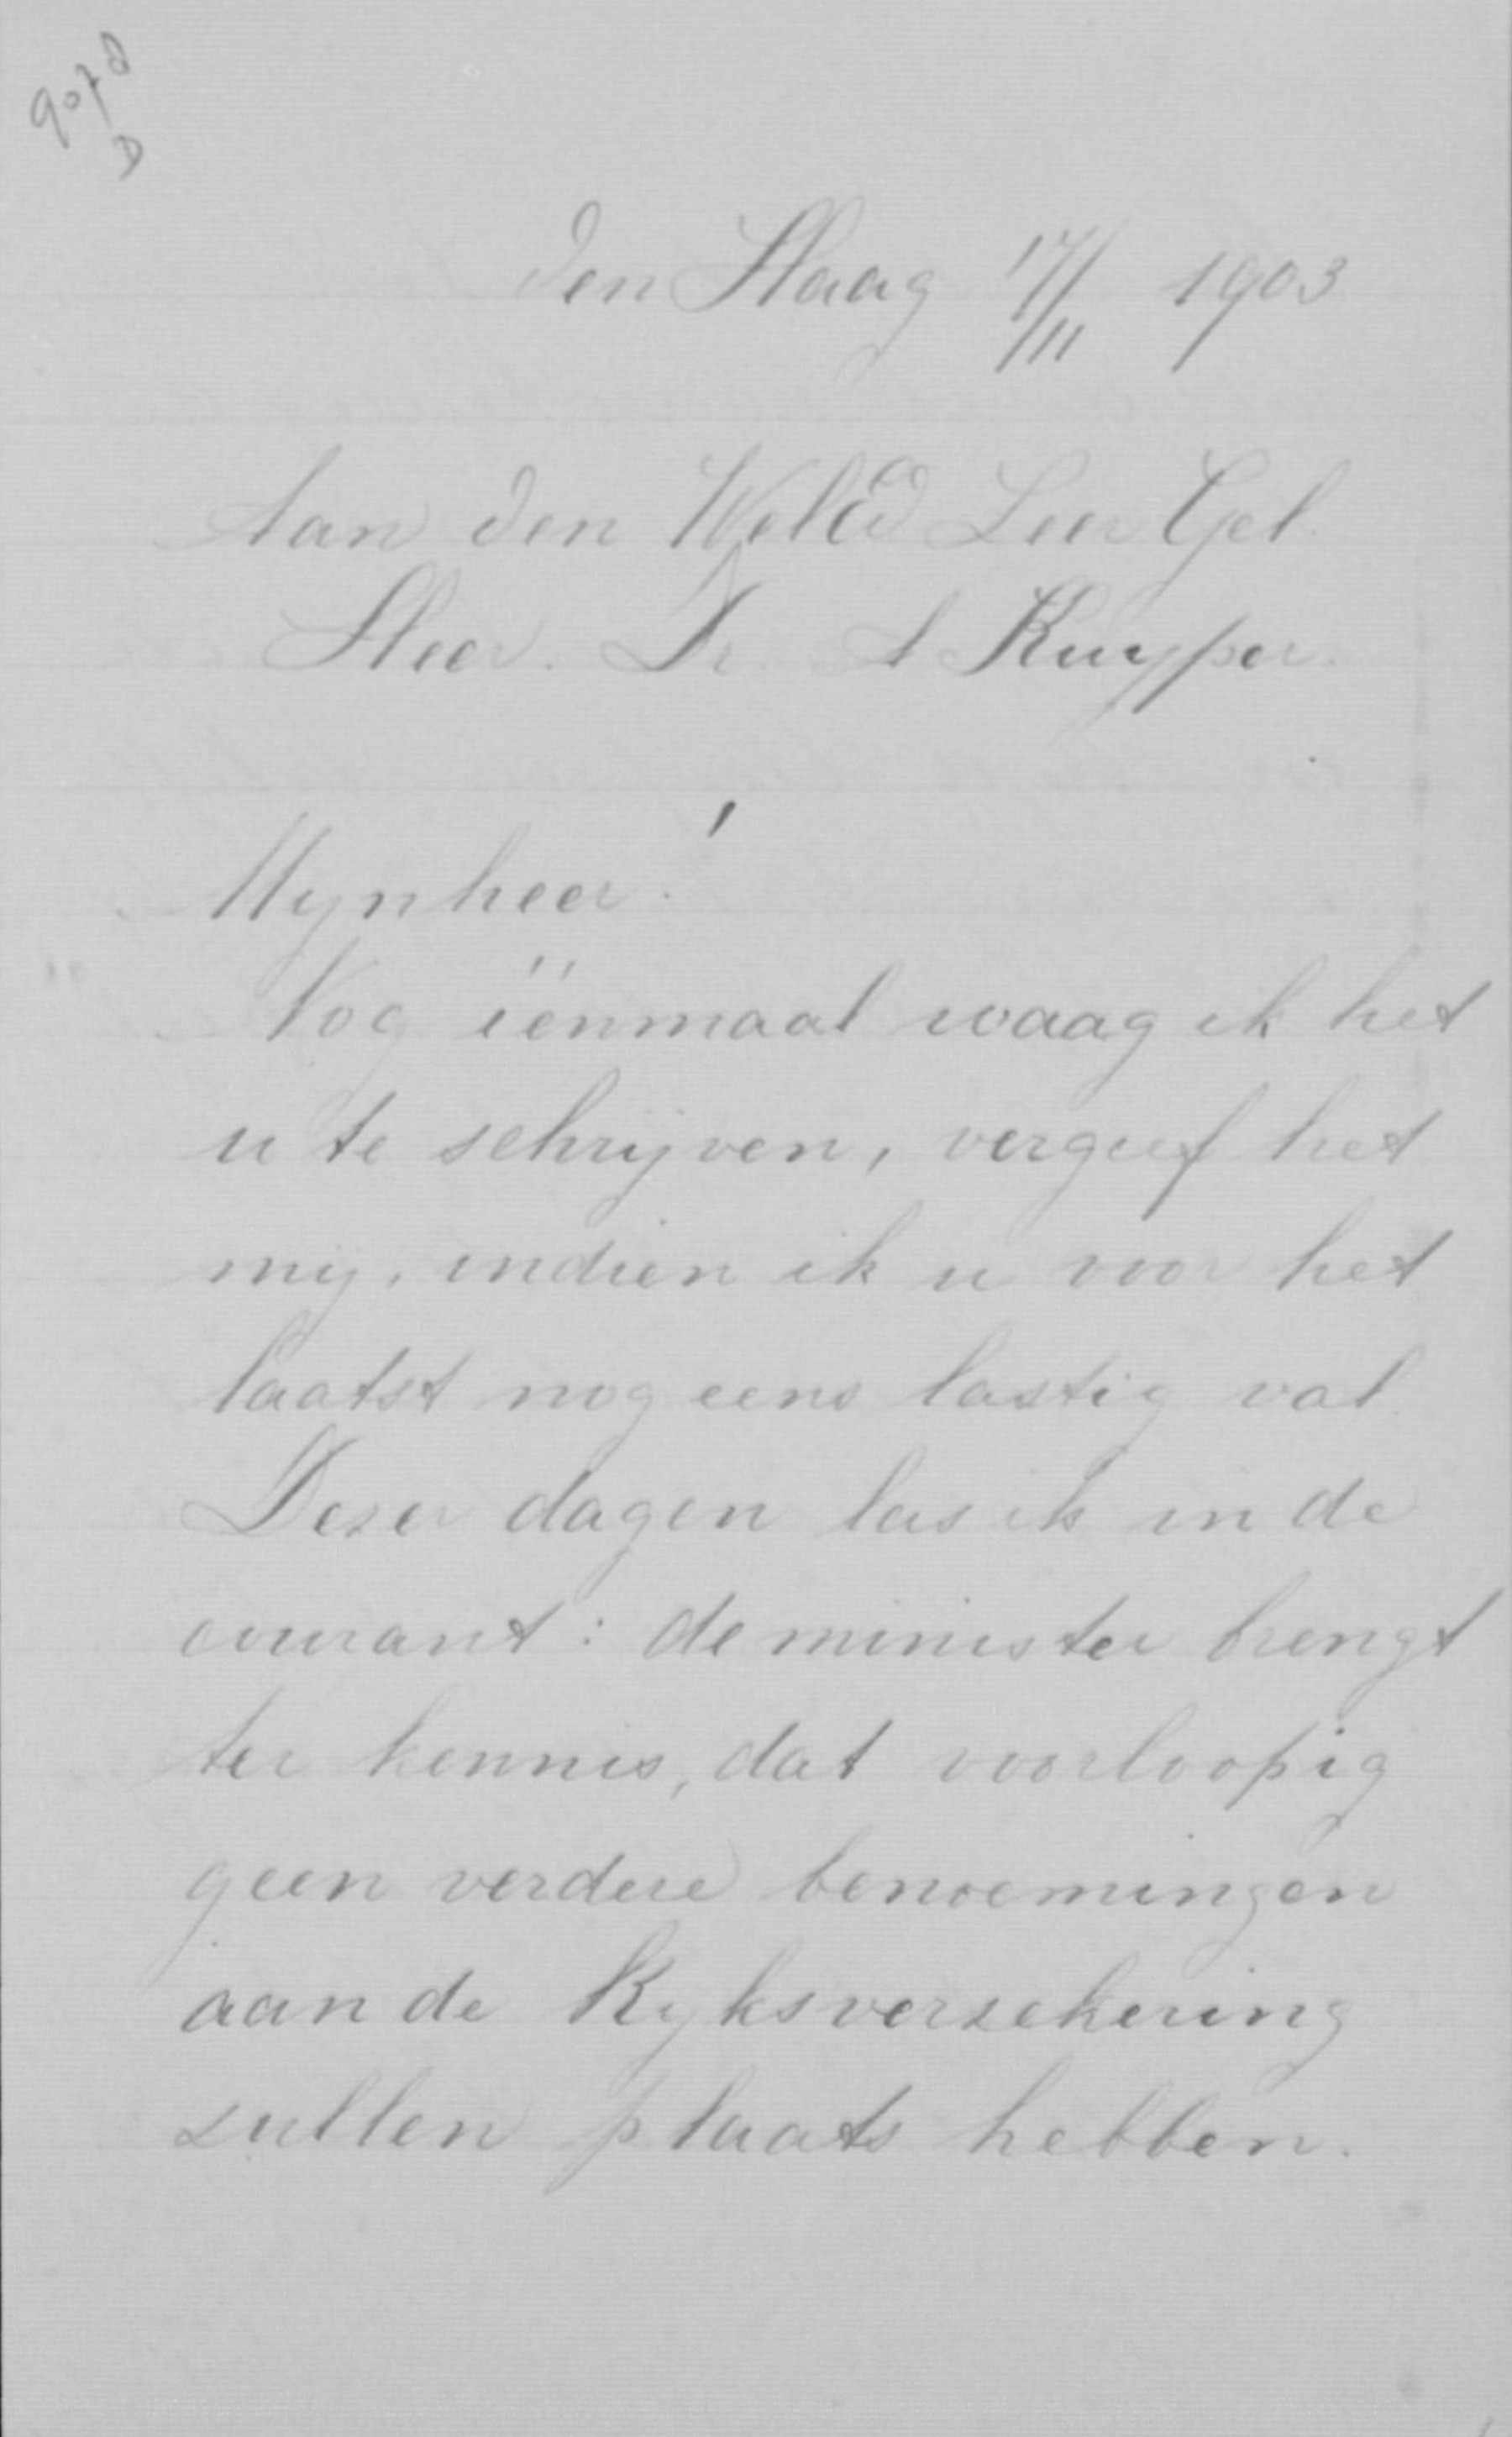 9078
D
den Haag 17/11 1903
Aan den WelEd Leer Gel.
Heer. Dr. A Kuyper.
Mynheer!
Nog éénmaal waag ik het
u te schrijven, vergeef het
mij, indien ik u voor het
laatst nog eens lastig val.
Dezer dagen las ik in de
courant: de minister brengt
ter kennis, dat voorloopig
geen verdere benoemingen
aan de Ryksverzekering
zullen plaats hebben.